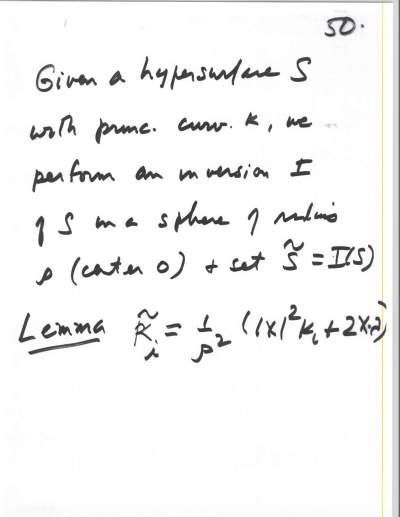 50.
Given a hypersurface S
with princ. curv. κ, we
perform an inversion I
of S in a sphere of radius
ρ (center 0) + set S̃ = I(S)
Lemma κ̃ᵢ = 1/ρ² (|X|²κᵢ + 2X·ν)